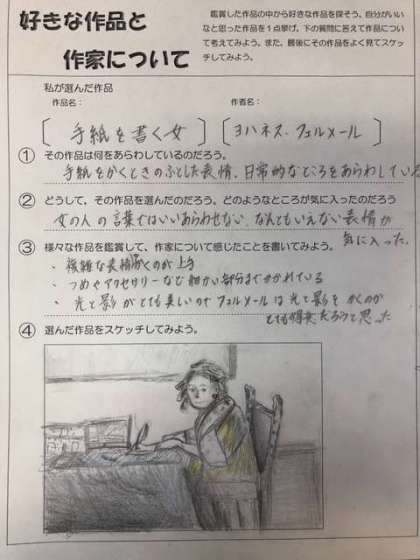 好きな作品と
作家について
鑑賞した作品の中から好きな作品を探そう。自分がいい
なと思った作品を1点挙げ、下の質問に答えて作品につい
て考えてみよう。また、最後にその作品をよく見てスケッ
チしてみよう。
私が選んだ作品
作品名： 作者名：
〔手紙を書く女〕〔ヨハネス・フェルメール〕
① その作品は何をあらわしているのだろう。
手紙をかくときのふとした表情、日常的なところをあらわしている
② どうして、その作品を選んだのだろう。どのようなところが気に入ったのだろう
女の人の言葉ではいいあらわせない、なんともいえない表情が
気に入った。
③ 様々な作品を鑑賞して、作家について感じたことを書いてみよう。
・複雑な表情 くのが上手
・つめやアクセサリーなど細かい部分までかかれている
・光と影がとても美しいのでフェルメールは光と影をかくのが
とても得意だろうと思った
④ 選んだ作品をスケッチしてみよう。